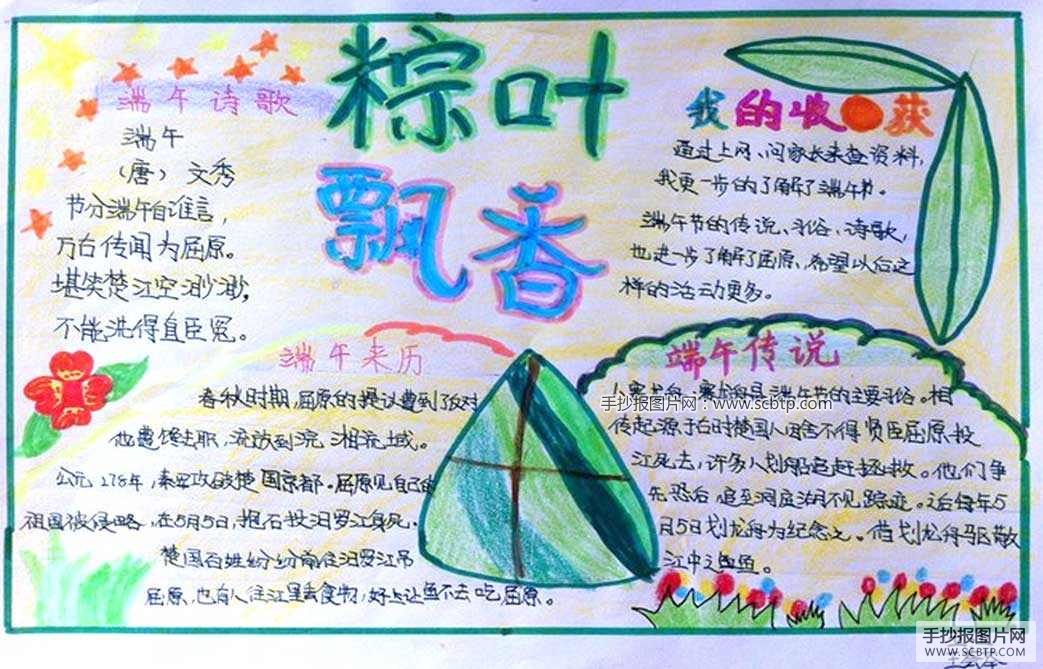 粽叶
飘香
端午诗歌
端午
（唐） 文秀
节分端午自谁言，
万古传闻为屈原。
堪笑楚江空渺渺，
不能洗得直臣冤。
我的收获
通过上网、问家长来查资料，
我更一步的了解了端午节。
端午节的传说、习俗、诗歌，
也进一步了解了屈原，希望以后这
样的活动更多。
端午来历
春秋时期，屈原的提议遭到了反对
他遭馋去职，流放到沅、湘流域。
公元278年，秦军攻破楚国京都。屈原见自己的
祖国被侵略，在5月5日，抱石投汨罗江身死，
楚国百姓纷纷前往汨罗江吊
屈原，也有人往江里丢食物，好让鱼不去吃屈原。
端午传说
是端午节的主要习俗。相
手抄报图片网：www.scbtp.com
传起源于古时楚国人因舍不得贤臣屈原投
江死去，许多人划船追赶拯救。他们争
先恐后，追至洞庭湖不见踪迹。之后每年5
月5日划龙舟为纪念之。借划龙舟驱散
江中之鱼。
手抄报图片网
WWW.SCBTP.COM